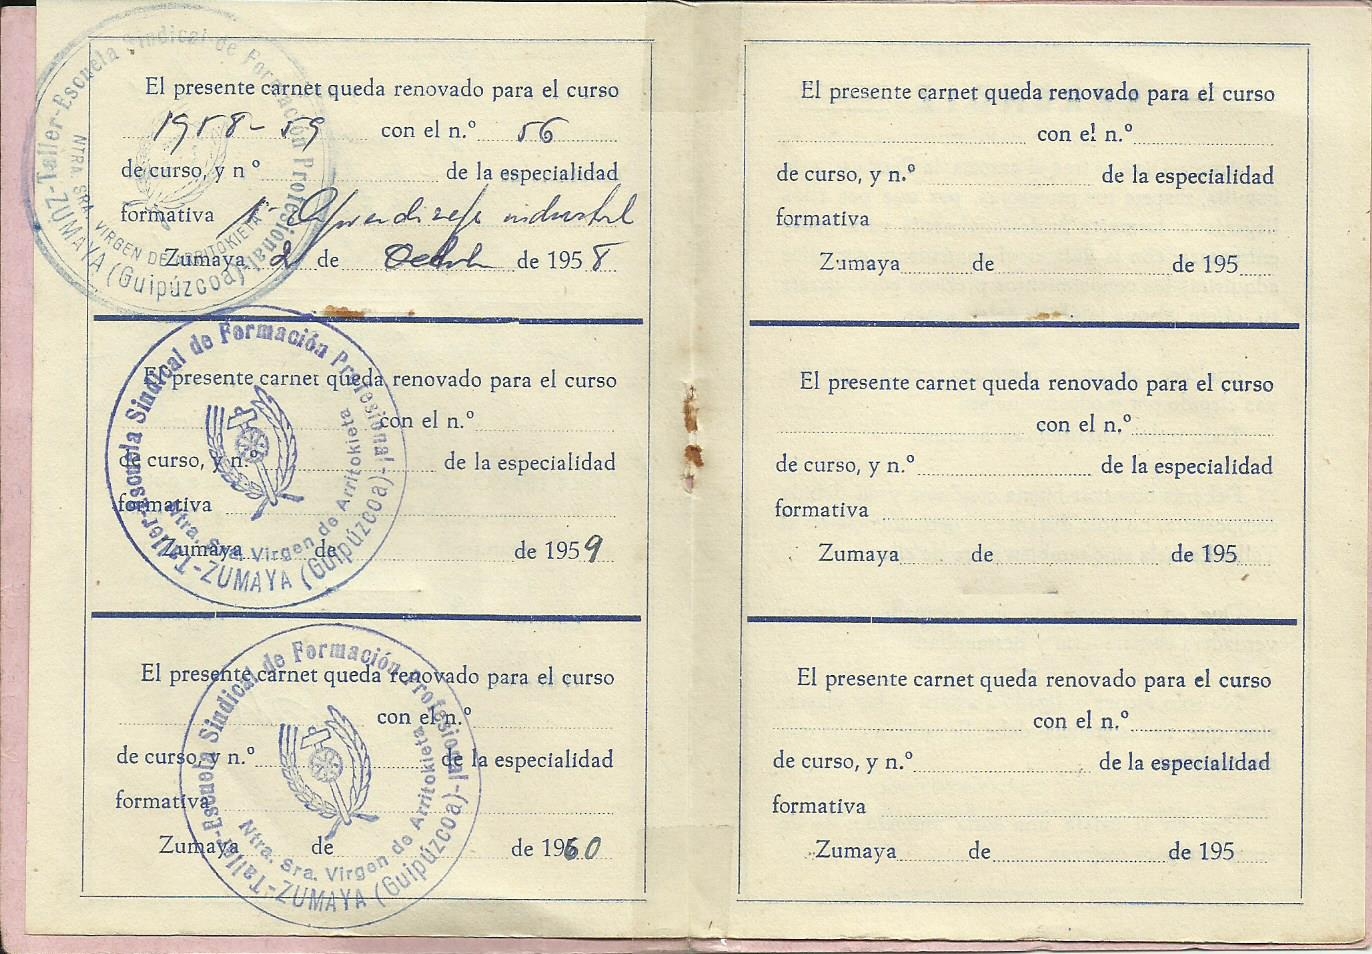 El presente carnet queda renovado para el curso
1958-59 con el n.º 56
de curso, y n º de la especialidad
formativa 1º Aprendizaje industrial
Zumaya 2 de Octubre de 1958
Taller-Escuela Sindical de Formación Profesional-
NTRA. SRA. VIRGEN DE ARRITOKIETA
ZUMAYA (Guipúzcoa)-
El presente carnet queda renovado para el curso
con el n.º
de curso, y n.º de la especialidad
formativa
Zumaya de de 1959
Taller-Escuela Sindical de Formación Profesional-
Ntra. Sra. Virgen de Arritokieta
ZUMAYA (Guipúzcoa)-
El presente carnet queda renovado para el curso
con el n.º
de curso, y n.º de la especialidad
formativa
Zumaya de de 1960
Taller-Escuela Sindical de Formación Profesional-
Ntra. Sra. Virgen de Arritokieta
ZUMAYA (Guipúzcoa)-
El presente carnet queda renovado para el curso
con el n.º
de curso, y n.º de la especialidad
formativa
Zumaya de de 195
El presente carnet queda renovado para el curso
con el n.º
de curso, y n.º de la especialidad
formativa
Zumaya de de 195
El presente carnet queda renovado para el curso
con el n.º
de curso, y n.º de la especialidad
formativa
Zumaya de de 195